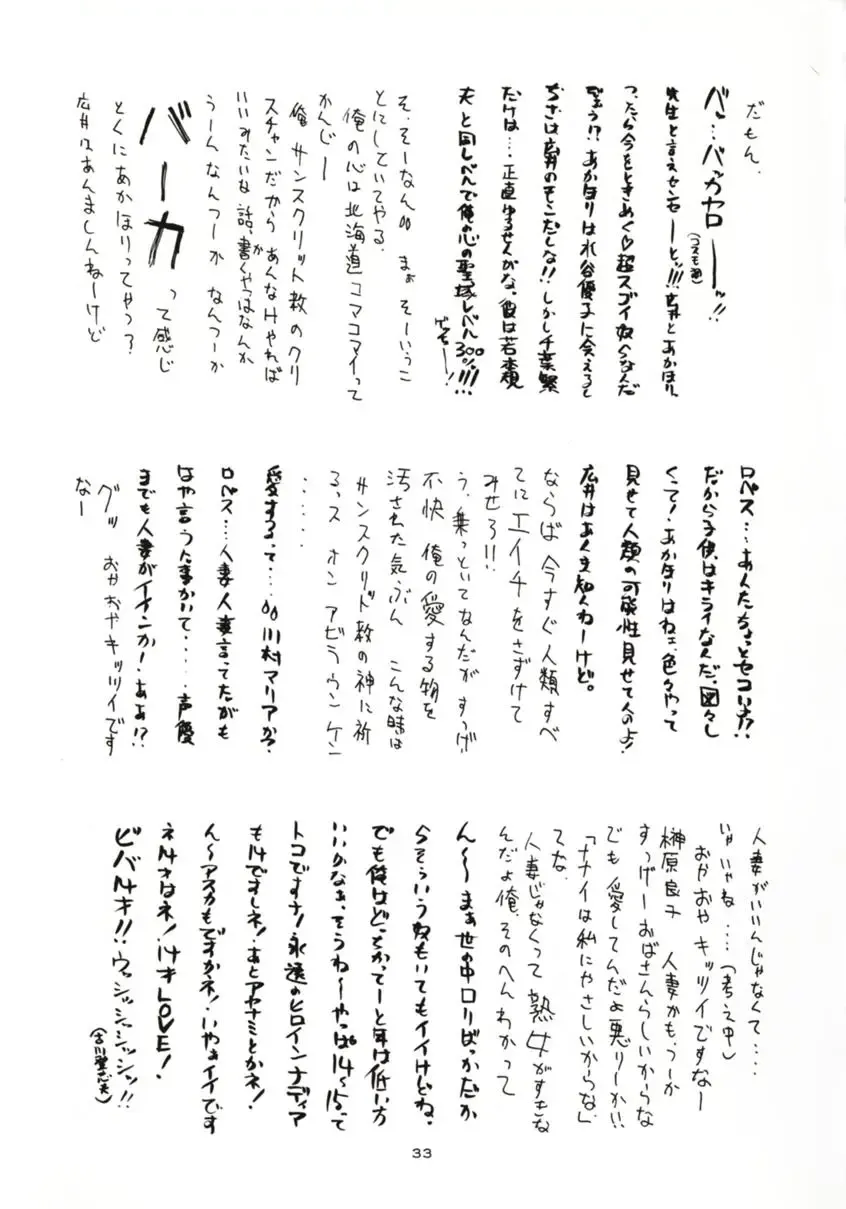 だもん。
バッ…バッカヤローーッ!!
(コスモ通)
先生と言えセンセーーと!!!広井とあかほり
ったら今をときめく♡超スゴイ奴らなんだ
ぞぉう!?あかほりは水谷優子に会えるし
ちさは広井のそこだしな!!しかし千葉繁
だけは…正直ゆるせんがな。彼は若本規
夫と同レベルで俺の心の聖域レベル300%!!!
ゲンモー!
そ、そーなん。。まぁ そーいうこ
とにしていてやる。
俺の心は北海道コマコマイって
かんじー
俺 サンスクリット教のクリ
スチャンだから あんなけやれば
いいみたいな話、書くやつはなんか
うーんなんつーか なんつーか
バーカって感じ
とくにあかほりってやつ?
広井はあんましんねーけど
ロペス…あんたちょっとセコい!?
だから子供はキライなんだ。図々し
くって!あかほりはねェ、色々やって
見せて人類の可能性見せて人のよ!
広井はあくま知んねーけど。
ならば今すぐ人類すべ
てにエイチをさずけて
みせろ!!
う、乗っといてなんだが すっげ
不快 俺の愛する物を
汚された気ぶん こんな時は
サンスクリット教の神に祈
るっス オン アビラウンケン
・・・・・
愛する、て…。。川村マリアか?
ロペス…人妻人妻言ってたがも
はや言うた事かいて‥‥声優
までも人妻がイインか!ああ!?
グッ おやおやキッツイです
なー
人妻がいいんじゃなくて‥‥
いゃいやね‥‥(考え中)
おやおや キッツイですなー
榊原良子 人妻かも。つーか
すっげーおばさんらしいからな
でも愛してんだよ悪りーかい!!
「ナナイは私にやさしいからな」
てな。
人妻じゃなくって熟女がすきな
んだよ俺。そのへんわかって
ん〜〜まぁ世の中ロリばっかだか
らそういう奴もいてもイイけどね。
でも俺はどっちかってーと年は低い方
いいかなぁ。そうね〜やっぱ14〜15って
トコですナ!永遠のヒロインナディア
も14ですしネ!あとアヤナミとかネ!
ん〜アスカもですかネ!いやぁイイです
ネ14才はネ!14才LOVE!
ビバ14才!!ウッシッシッシッシッ!!